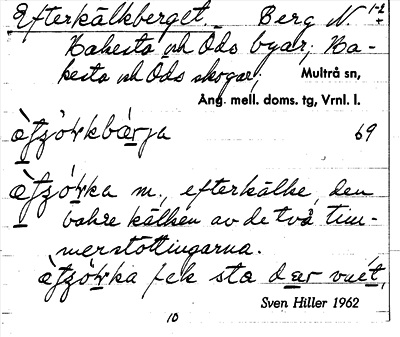 Efterkälkberget. Berg N. 1-2
Bakesta och Öds byar; Ba-
kesta och Öds skogar;
Multrå sn,
Ång. mell. doms. tg, Vrnl. l.
69
m., efterkälke, den
bakre kälken av de två tim-
merstöttingarna.
fek sta
Sven Hiller 1962
10